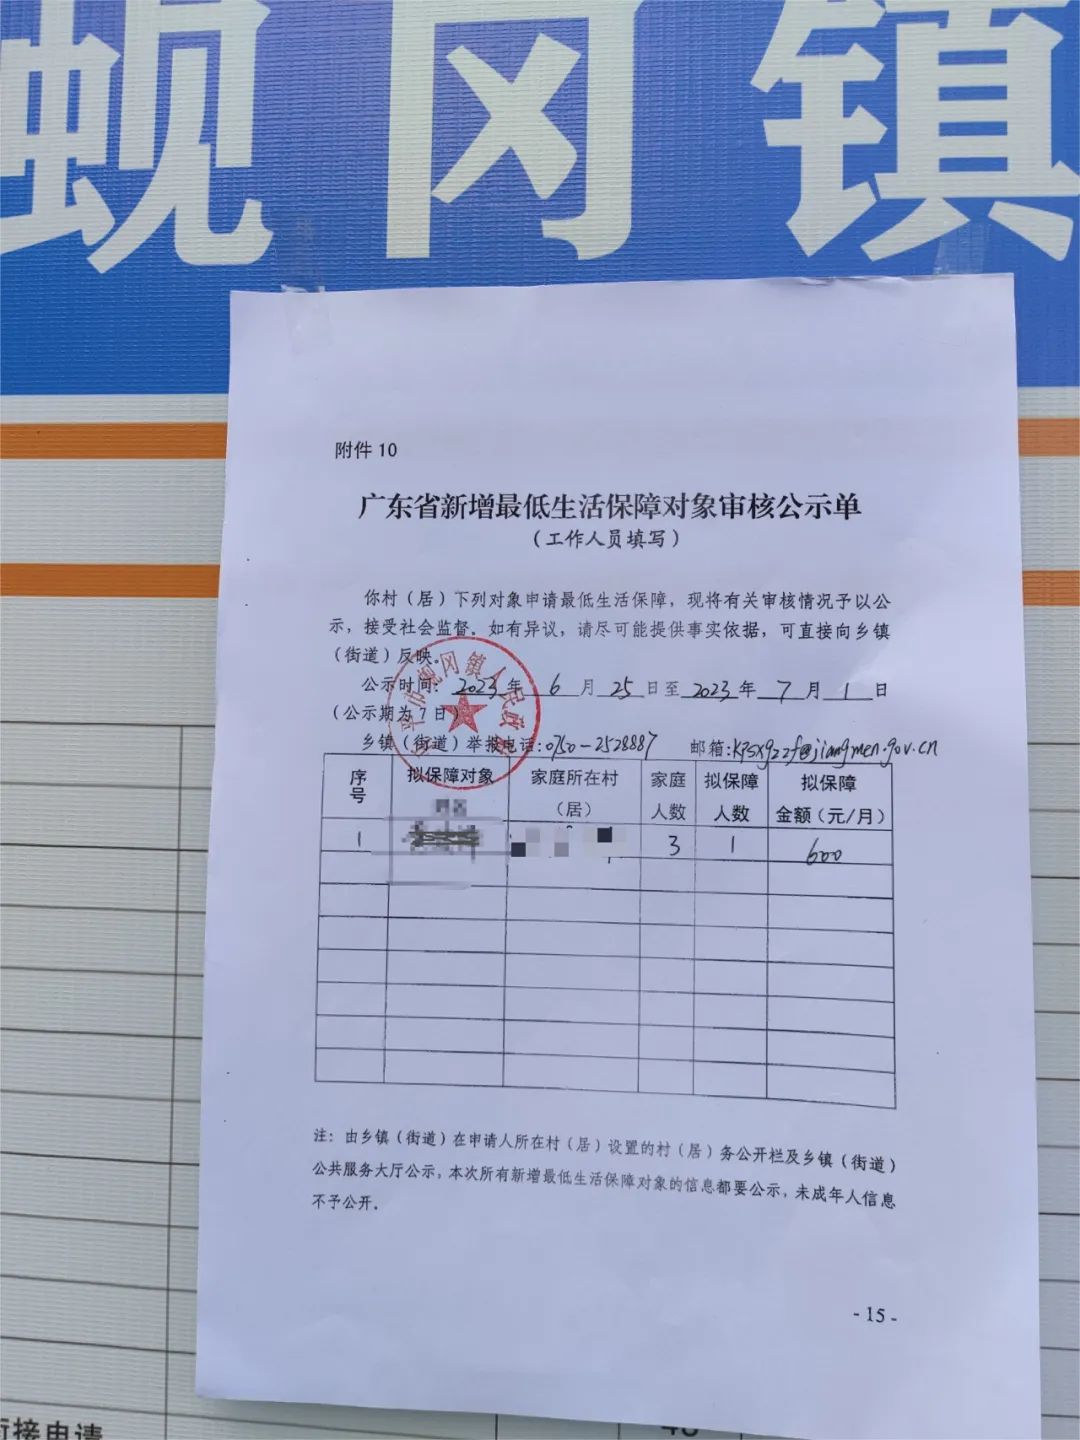 蚬冈镇
附件 10
广东省新增最低生活保障对象审核公示单
（工作人员填写）
你村（居）下列对象申请最低生活保障，现将有关审核情况予以公
示，接受社会监督。如有异议，请尽可能提供事实依据，可直接向乡镇
（街道）反映。
公示时间：2023年 6 月 25 日至 2023 年 7 月 1 日
（公示期为 7 日）
乡镇（街道）举报电话：0750-2528887 邮箱：kpsxgzzf@jiangmen.gov.cn
序号 拟保障对象 家庭所在村（居） 家庭人数 拟保障人数 拟保障金额（元/月）
1 3 1 600
注：由乡镇（街道）在申请人所在村（居）设置的村（居）务公开栏及乡镇（街道）
公共服务大厅公示，本次所有新增最低生活保障对象的信息都要公示，未成年人信息
不予公开。
- 15 -
接申请